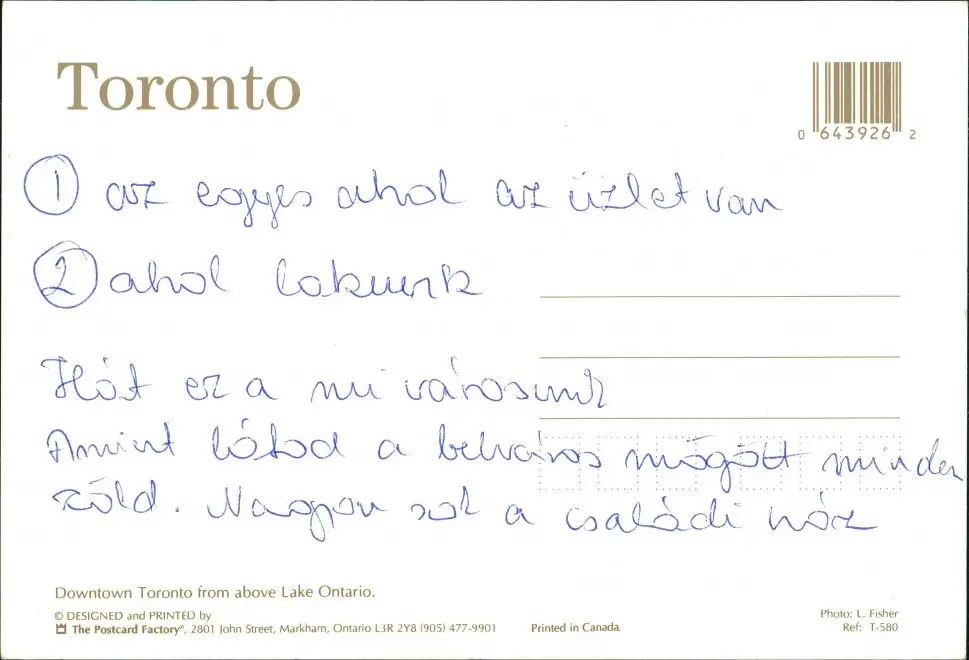 Toronto
0 643926 2
① az egyes ahol az üzlet van
② ahol lakunk
Hát ez a mi városunk
Amint látod a belváros mögött minden
zöld. Nagyon sok a családi ház
Downtown Toronto from above Lake Ontario.
© DESIGNED and PRINTED by
The Postcard Factory®, 2801 John Street, Markham, Ontario L3R 2Y8 (905) 477-9901
Printed in Canada
Photo: L. Fisher
Ref: T-580